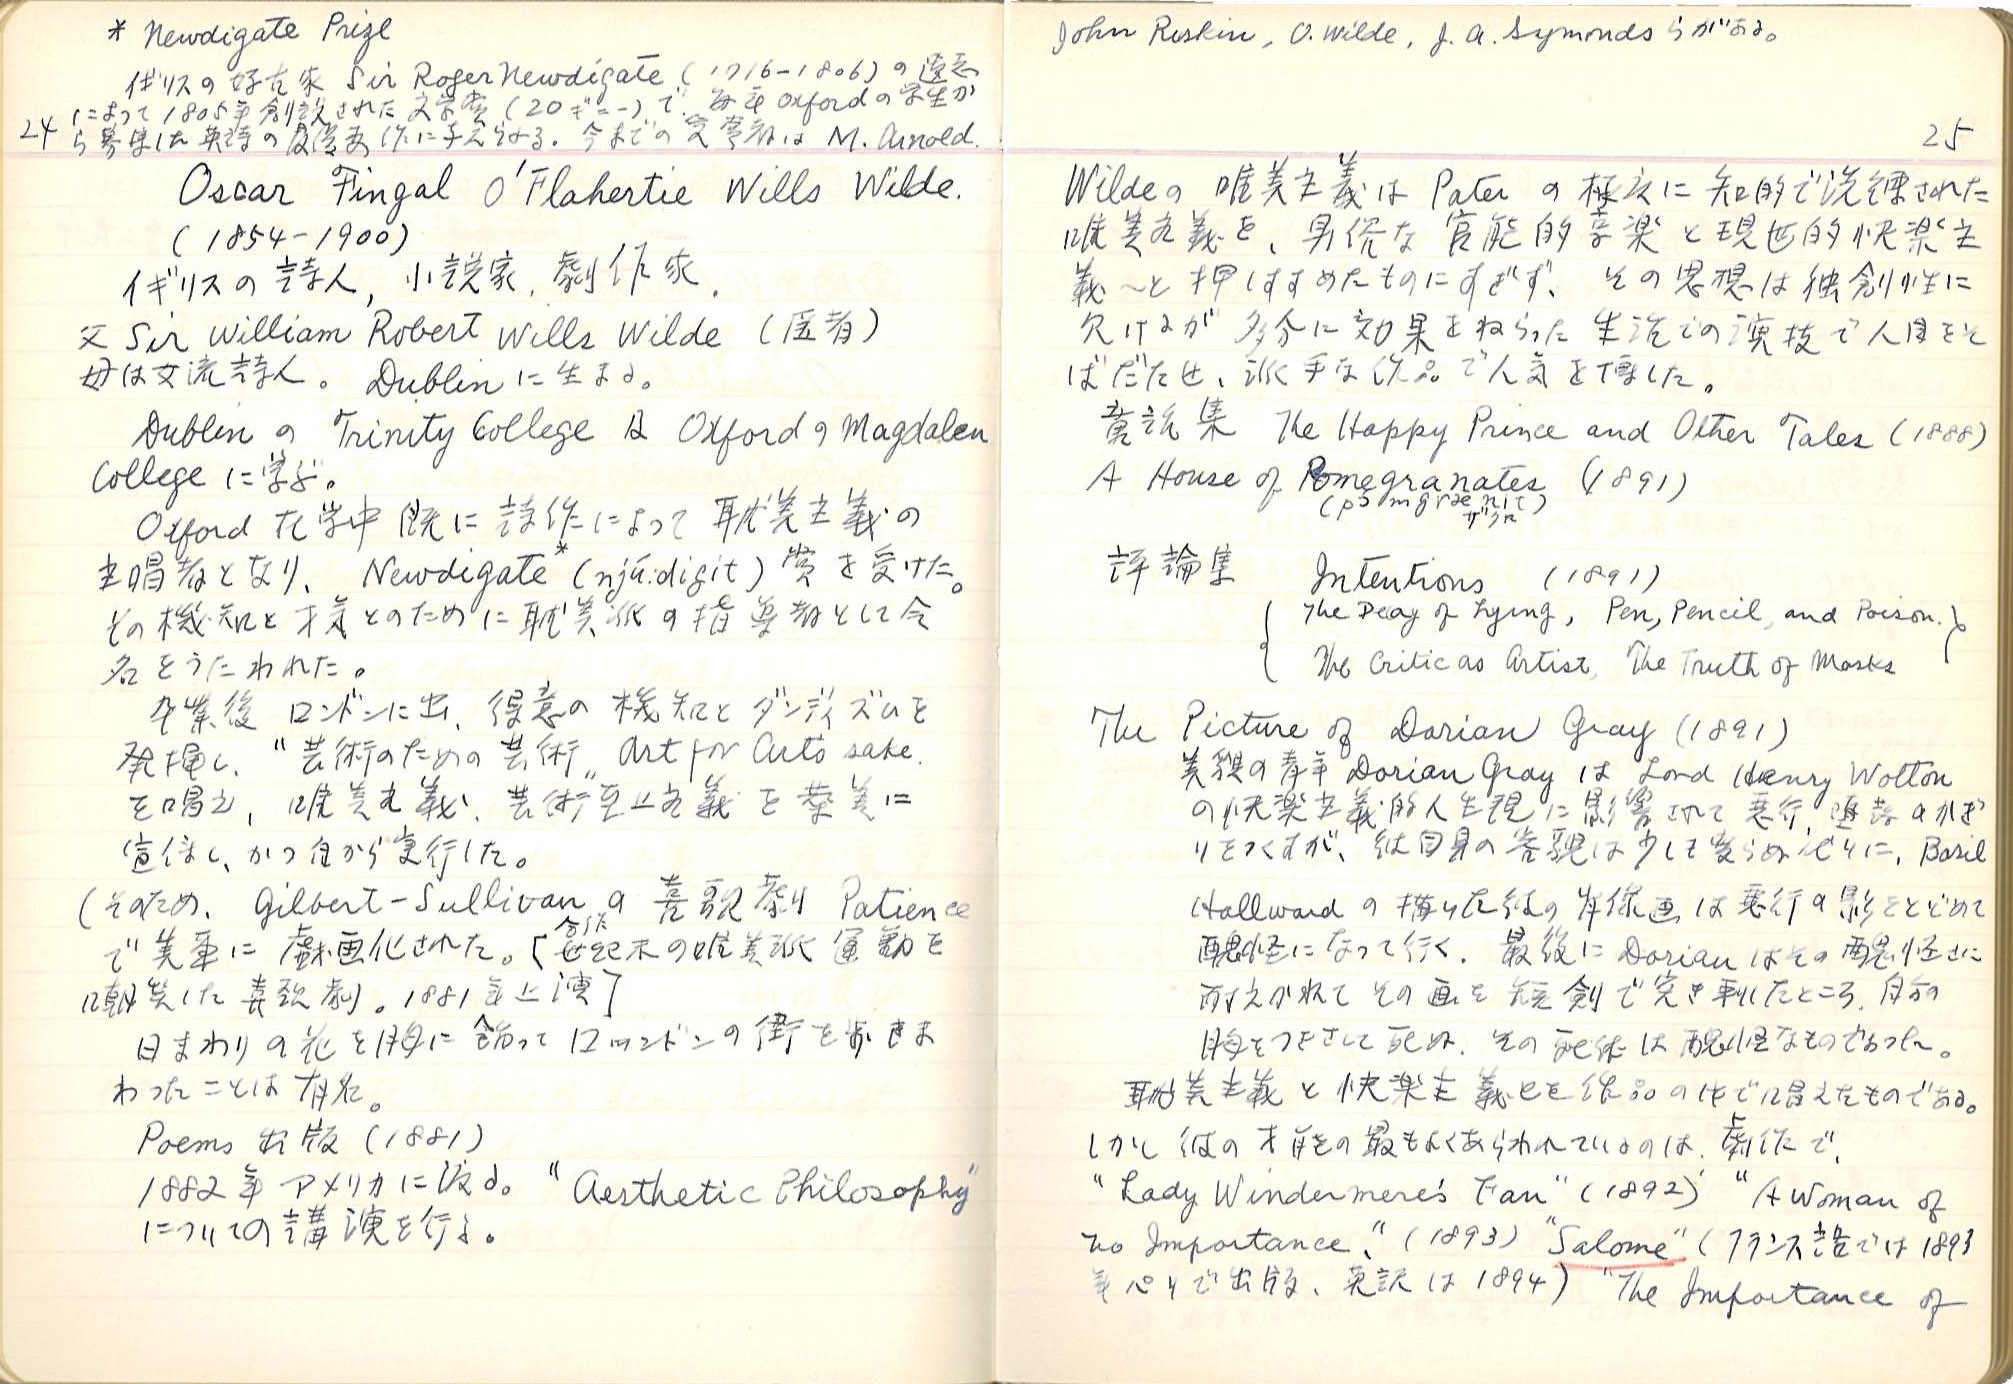 * Newdigate Prize
イギリスの好古家 Sir Roger Newdigate (1716-1806) の遺志
によって1805年創設された文学賞 (20ギニー) で、毎年 Oxford の学生か
24 ら募集した英詩の最優秀作に与えられる。今までの受賞者は M. Arnold.
Oscar Fingal O'Flahertie Wills Wilde.
(1854-1900)
イギリスの詩人, 小説家, 劇作家.
父 Sir William Robert Wills Wilde (医者)
母は女流詩人。 Dublin に生まる。
Dublin の Trinity College 及 Oxford の Magdalen
College に学ぶ。
Oxford 在学中 既に詩作によって耽美主義の
主唱者となり、 Newdigate* (njú:digit) 賞を受けた。
その機知と才気とのために耽美派の指導者として令
名をうたわれた。
卒業後 ロンドンに出、得意の機知とダンディズムを
発揮し、"芸術のための芸術" Art for Art's sake.
を唱え, 唯美主義、芸術至上主義を華美に
宣伝し、かつ自から実行した。
(そのため、 Gilbert-Sullivan 合作の喜歌劇 Patience
で美事に戯画化された。[世紀末の唯美派運動を
嘲笑した喜歌劇。1881年上演]
日まわりの花を胸に飾ってロンドンの街を歩きま
わったことは有名。
Poems 出版 (1881)
1882年アメリカに渡る。 "Aesthetic Philosophy"
についての講演を行う。
John Ruskin, O. Wilde, J. A. Symonds らがある。
25
Wilde の 唯美主義は Pater の極度に知的で洗練された
唯美主義を、卑俗な官能的享楽と現世的快楽主
義へと押しすすめたものにすぎず、その思想は独創性に
欠けるが 多分に効果をねらった生活での演技で人目をそ
ばだたせ、派手な作品で人気を博した。
童話集 The Happy Prince and Other Tales (1888)
A House of Pomegranates (1891)
(pɔ́mgrænit)
ザクロ
評論集 Intentions (1891)
{ The Decay of Lying, Pen, Pencil, and Poison. }
The Critic as Artist, The Truth of Masks
The Picture of Dorian Gray (1891)
美貌の青年 Dorian Gray は Lord Henry Wotton
の快楽主義的人生観に影響されて悪行, 堕落のかぎ
りをつくすが、彼自身の容貌は少しも変らぬ代りに, Basil
Hallward の描いた彼の肖像画は悪行の影をとどめて
醜怪になって行く. 最後に Dorian はその醜怪さに
耐えかねてその画を短剣で突き刺したところ, 自分の
胸をつきさして死ぬ. その死体は醜怪なものであった。
耽美主義と快楽主義とを作品の中で唱えたものである。
しかし彼の才能の最もよくあらわれているのは、劇作で,
"Lady Windermere's Fan" (1892) "A Woman of
no Importance," (1893) "Salome" (フランス語では1893
年パリで出版、英訳は1894) "The Importance of